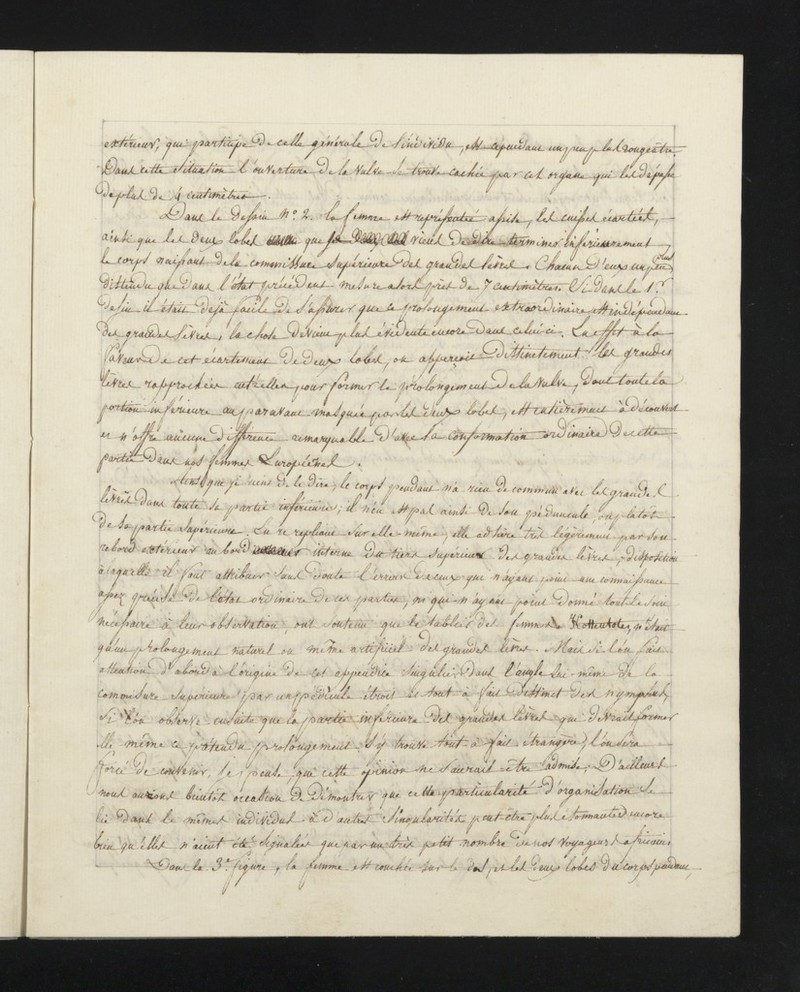 extérieur, qui participe de celle générale de l'individu, est cependant un peu plus rougeatre.
Dans cette situation l'ouverture de la vulve se trouve cachée par cet organe qui les dépasse
de plus de 4 centimètres.
Dans le dessin N.° 2. la femme est représentée assise, les cuisses écartées,
ainsi que les deux lobes que viens de dire terminer inférieurement
le corps naissant de la commissure supérieure des grandes lèvres. Chacun d'eux un peu plus
distendu que dans l'état précédent mesure alors près de 7 centimètres. Si dans le 1.er
dessin il était déjà facile de s'assurer que ce prolongement extraordinaire est indépendant
des grandes lèvres, la chose devient plus évidente encore dans celui-ci. En effet à la
faveur de cet écartement de deux lobes, on apperçoit distinctement les grandes
lèvres rapprochées entr'elles pour former le prolongement de la vulve, dont toute la
portion inférieure auparavant masquée par les deux lobes, est entièrement à découvert
et n'offre aucune différence remarquable d'avec la conformation ordinaire de cette
partie dans nos femmes Européenes.
Ainsi que je viens de le dire, le corps pendant n'a rien de commun avec les grandes
lèvres dans toute sa partie inférieure; il n'en est pas ainsi de son pédoncule, ou plutôt
de sa partie supérieure. En se repliant sur elle-même, elle adhère très légèrement par son
rebord extérieur au bord interne du tiers supérieur des grandes lèvres, disposition
à laquelle il faut attribuer sans doute l'erreur de ceux que n'ayant point une connaissance
assez précise de l'état ordinaire de ces parties, ou qui n'ayant point donné tout le soin
nécessaire à leur observation, ont soutenu que le tablier des femmes Hottentote, n'était
qu'un prolongement naturel ou même artificiel des grandes lèvres. Mais si l'on fait
attention d'abord à l'origine de cet appendice singulier, dans l'angle lui-même de la
commissure supérieure, par un pédicule étroit et tout à fait distinct des nymphes,
si l'on observe ensuite que la partie inférieure des grandes lèvres qui devrait former
elle même ce prétendu prolongement s'y trouve tout à fait étrangère, l'on sera
forcé de convenir, je pense, que cette opinion ne saurait être admise. D'ailleurs
nous aurons bientôt occasion de démontrer que cette particularité d'organisation se
lie dans le même individu à d'autres singularités peut être plus étonnantes encore
bien qu'elles n'aient été signalées que par un très petit nombre de nos voyageurs africains
Dans la 3.e figure, la femme est couchée sur le dos, et les deux lobes du corps pendant,